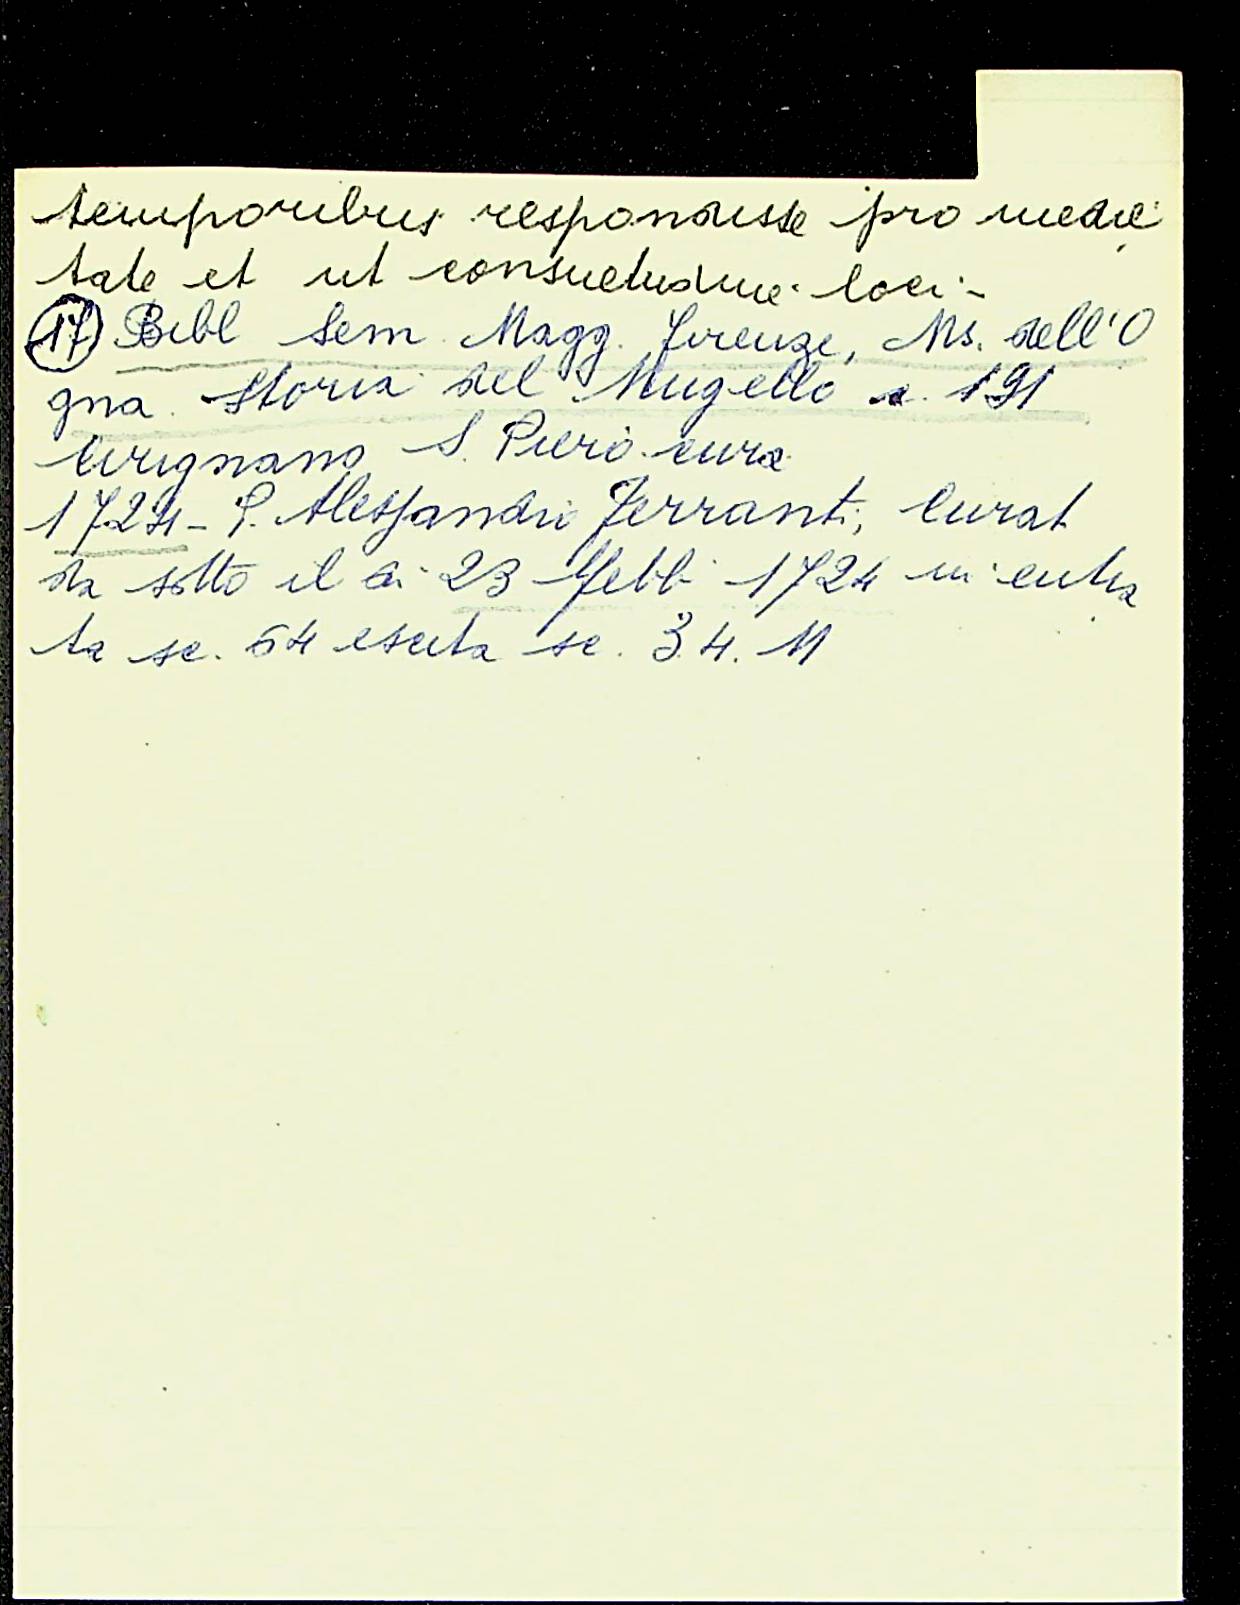 temporibus respondisse pro medie
tate et ut consuetudine loci -
17 Bibl Sem Magg. Firenze, Ms. dell'O
gna Storia del Mugello c. 191
Cirignano S. Piero cura
1724 - P. Alessandro Ferranti, Curat
da sotto il dì 23 Febb 1724 in entra
ta sc. 64 escita sc. 34. M